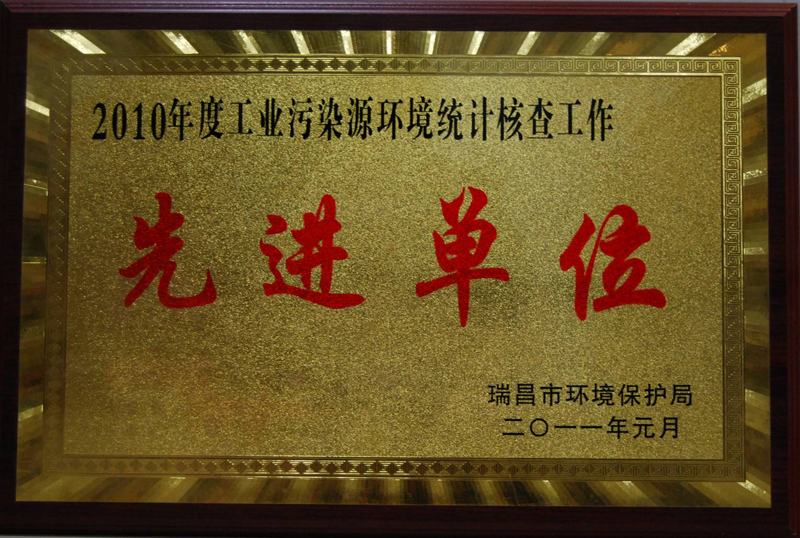 2010年度工业污染源环境统计核查工作
先进单位
瑞昌市环境保护局
二〇一一年元月